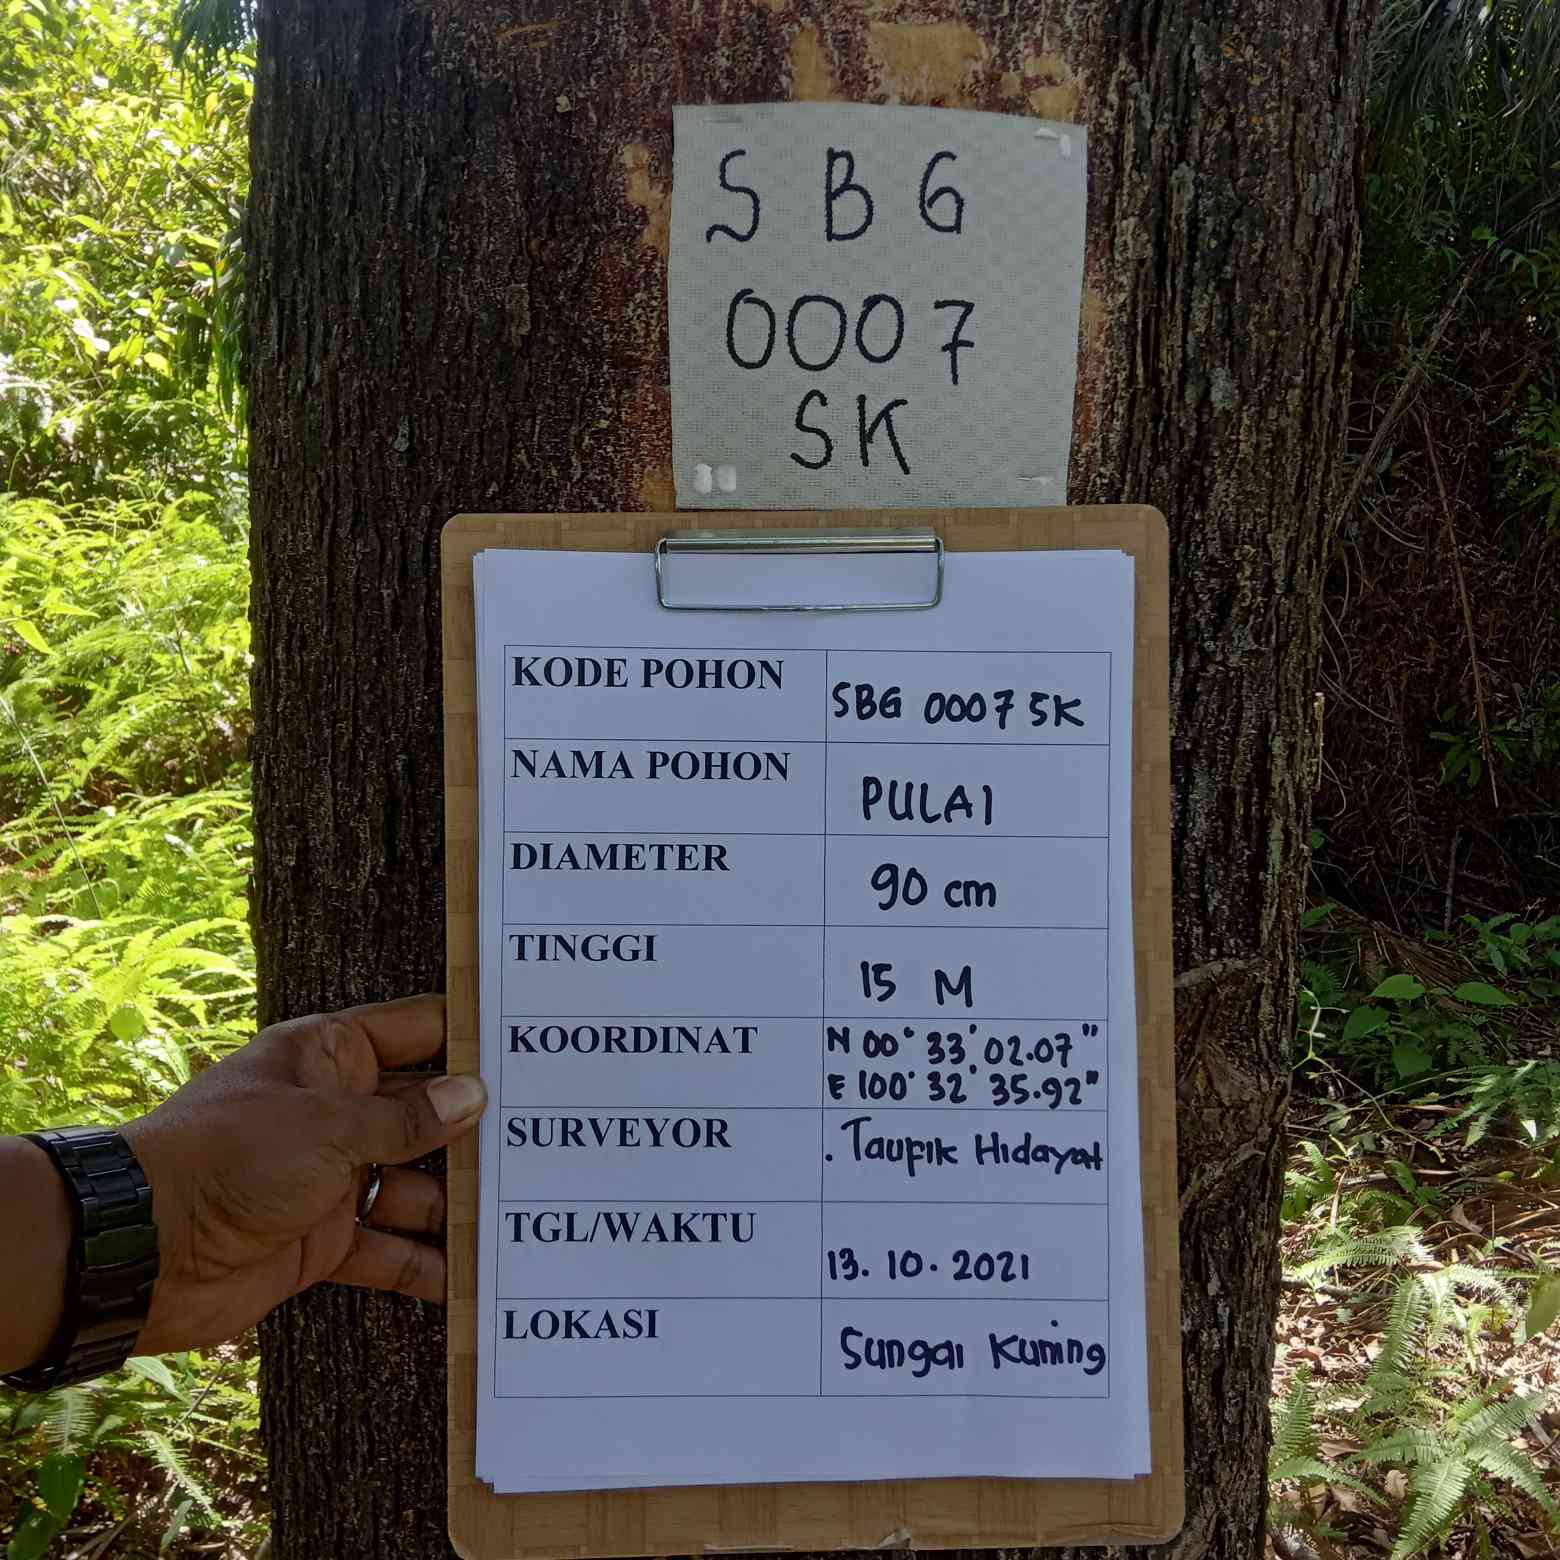 SBG
0007
SK
KODE POHON SBG 0007 SK
NAMA POHON PULAI
DIAMETER 90 cm
TINGGI 15 M
KOORDINAT N 00° 33' 02.07"
E 100° 32' 35.92"
SURVEYOR . Taufik Hidayat
TGL/WAKTU 13.10.2021
LOKASI Sungai Kuning